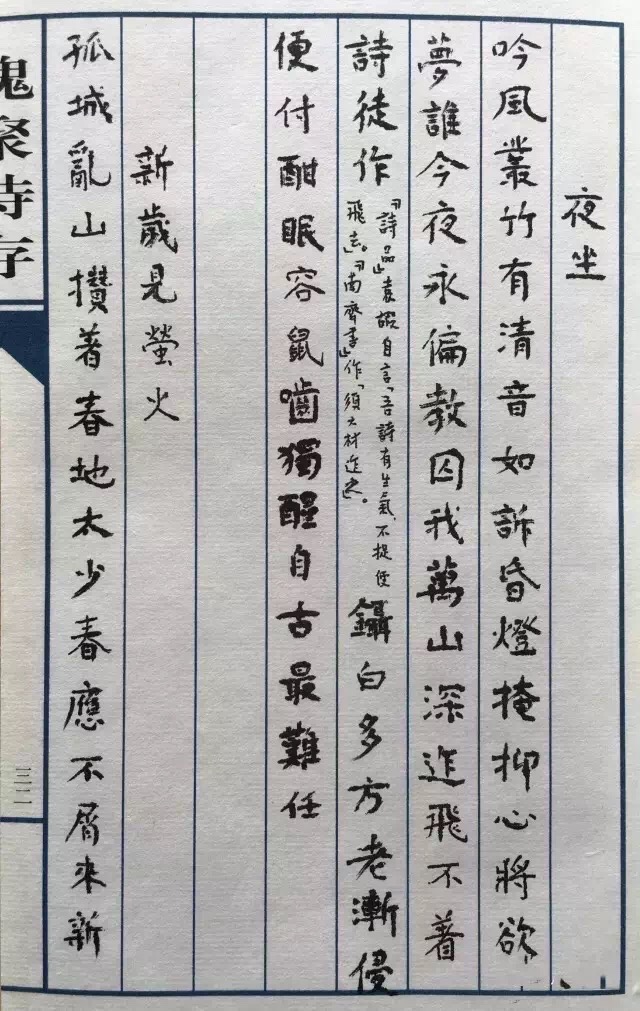 夜坐
吟風叢竹有清音如訴昏燈掩抑心將欲
夢誰今夜永偏教囚我萬山深迮飛不着
詩徒作
『詩品』袁嘏自言「吾詩有生氣,不捉便
飛去。」『南齊書』作「須大材迮之」。
鑷白多方老漸侵
便付酣眠容鼠嚙獨醒自古最難任
新歲見螢火
孤城亂山攢着春地太少春應不屑來新
槐聚詩存
三二